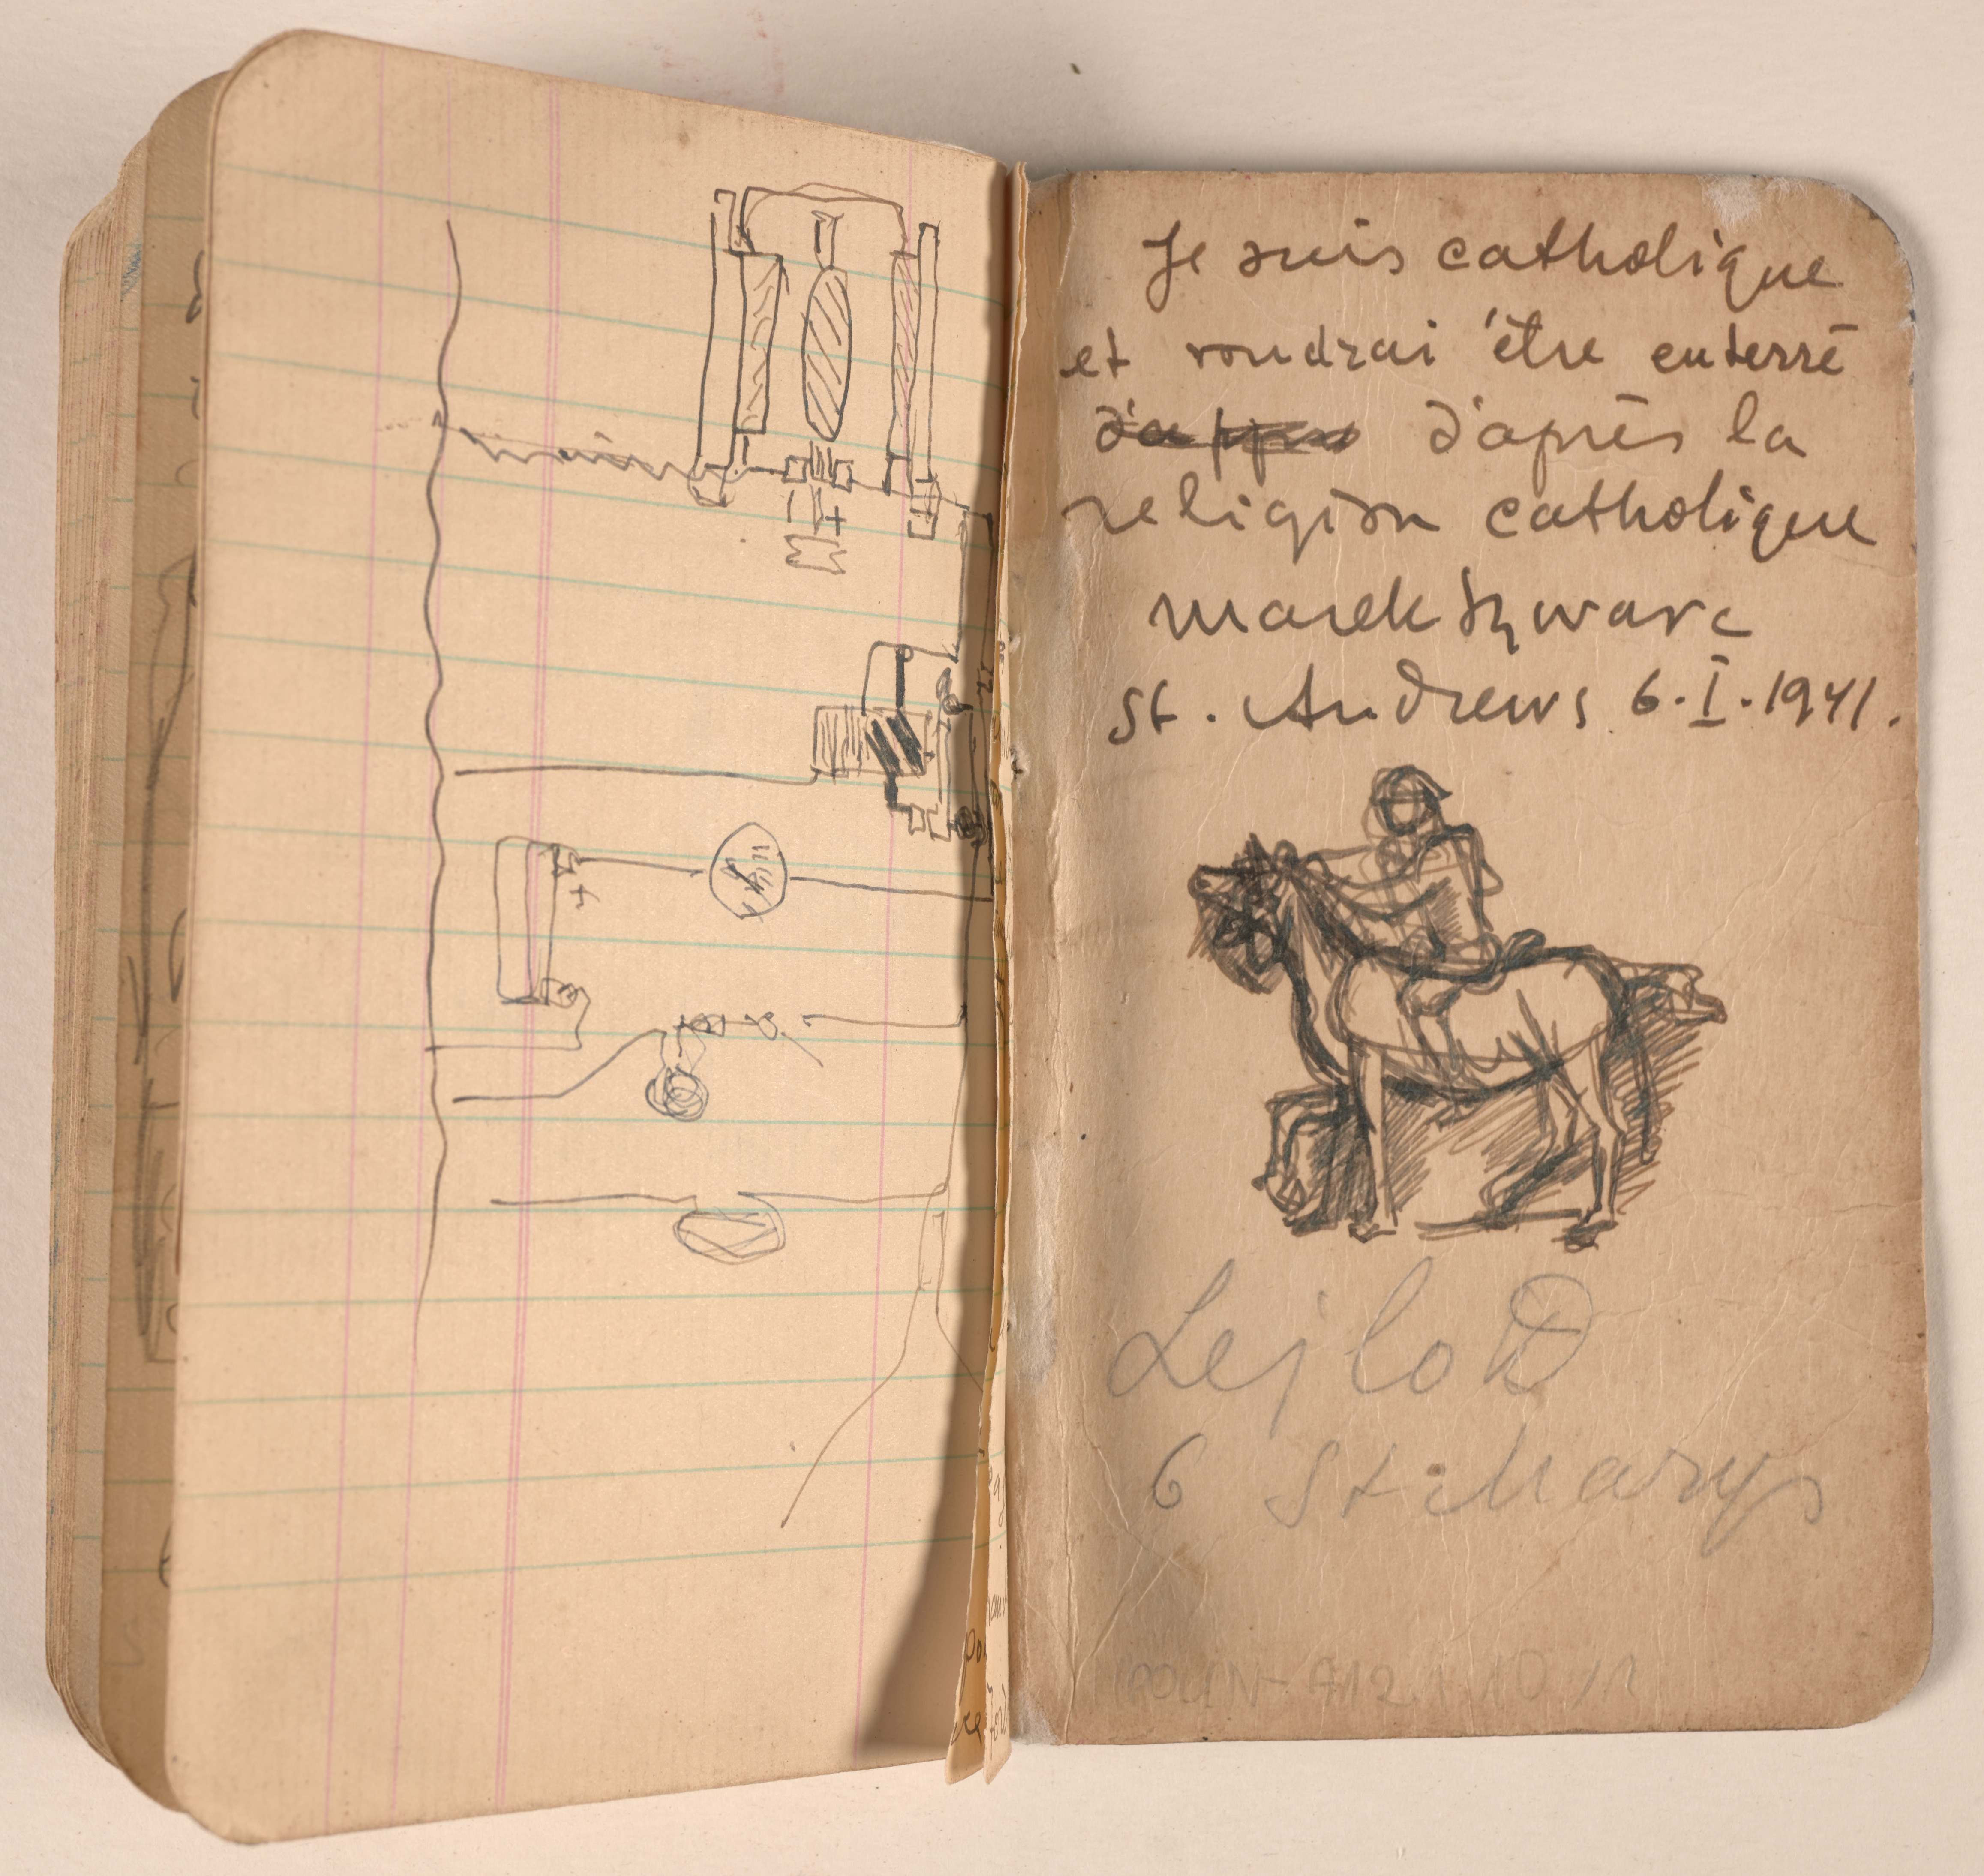 Je suis catholique
et voudrai être enterré
d'après la
religion catholique
marek Szwarc
St. Andrews 6.I.1941.
6 St Marys